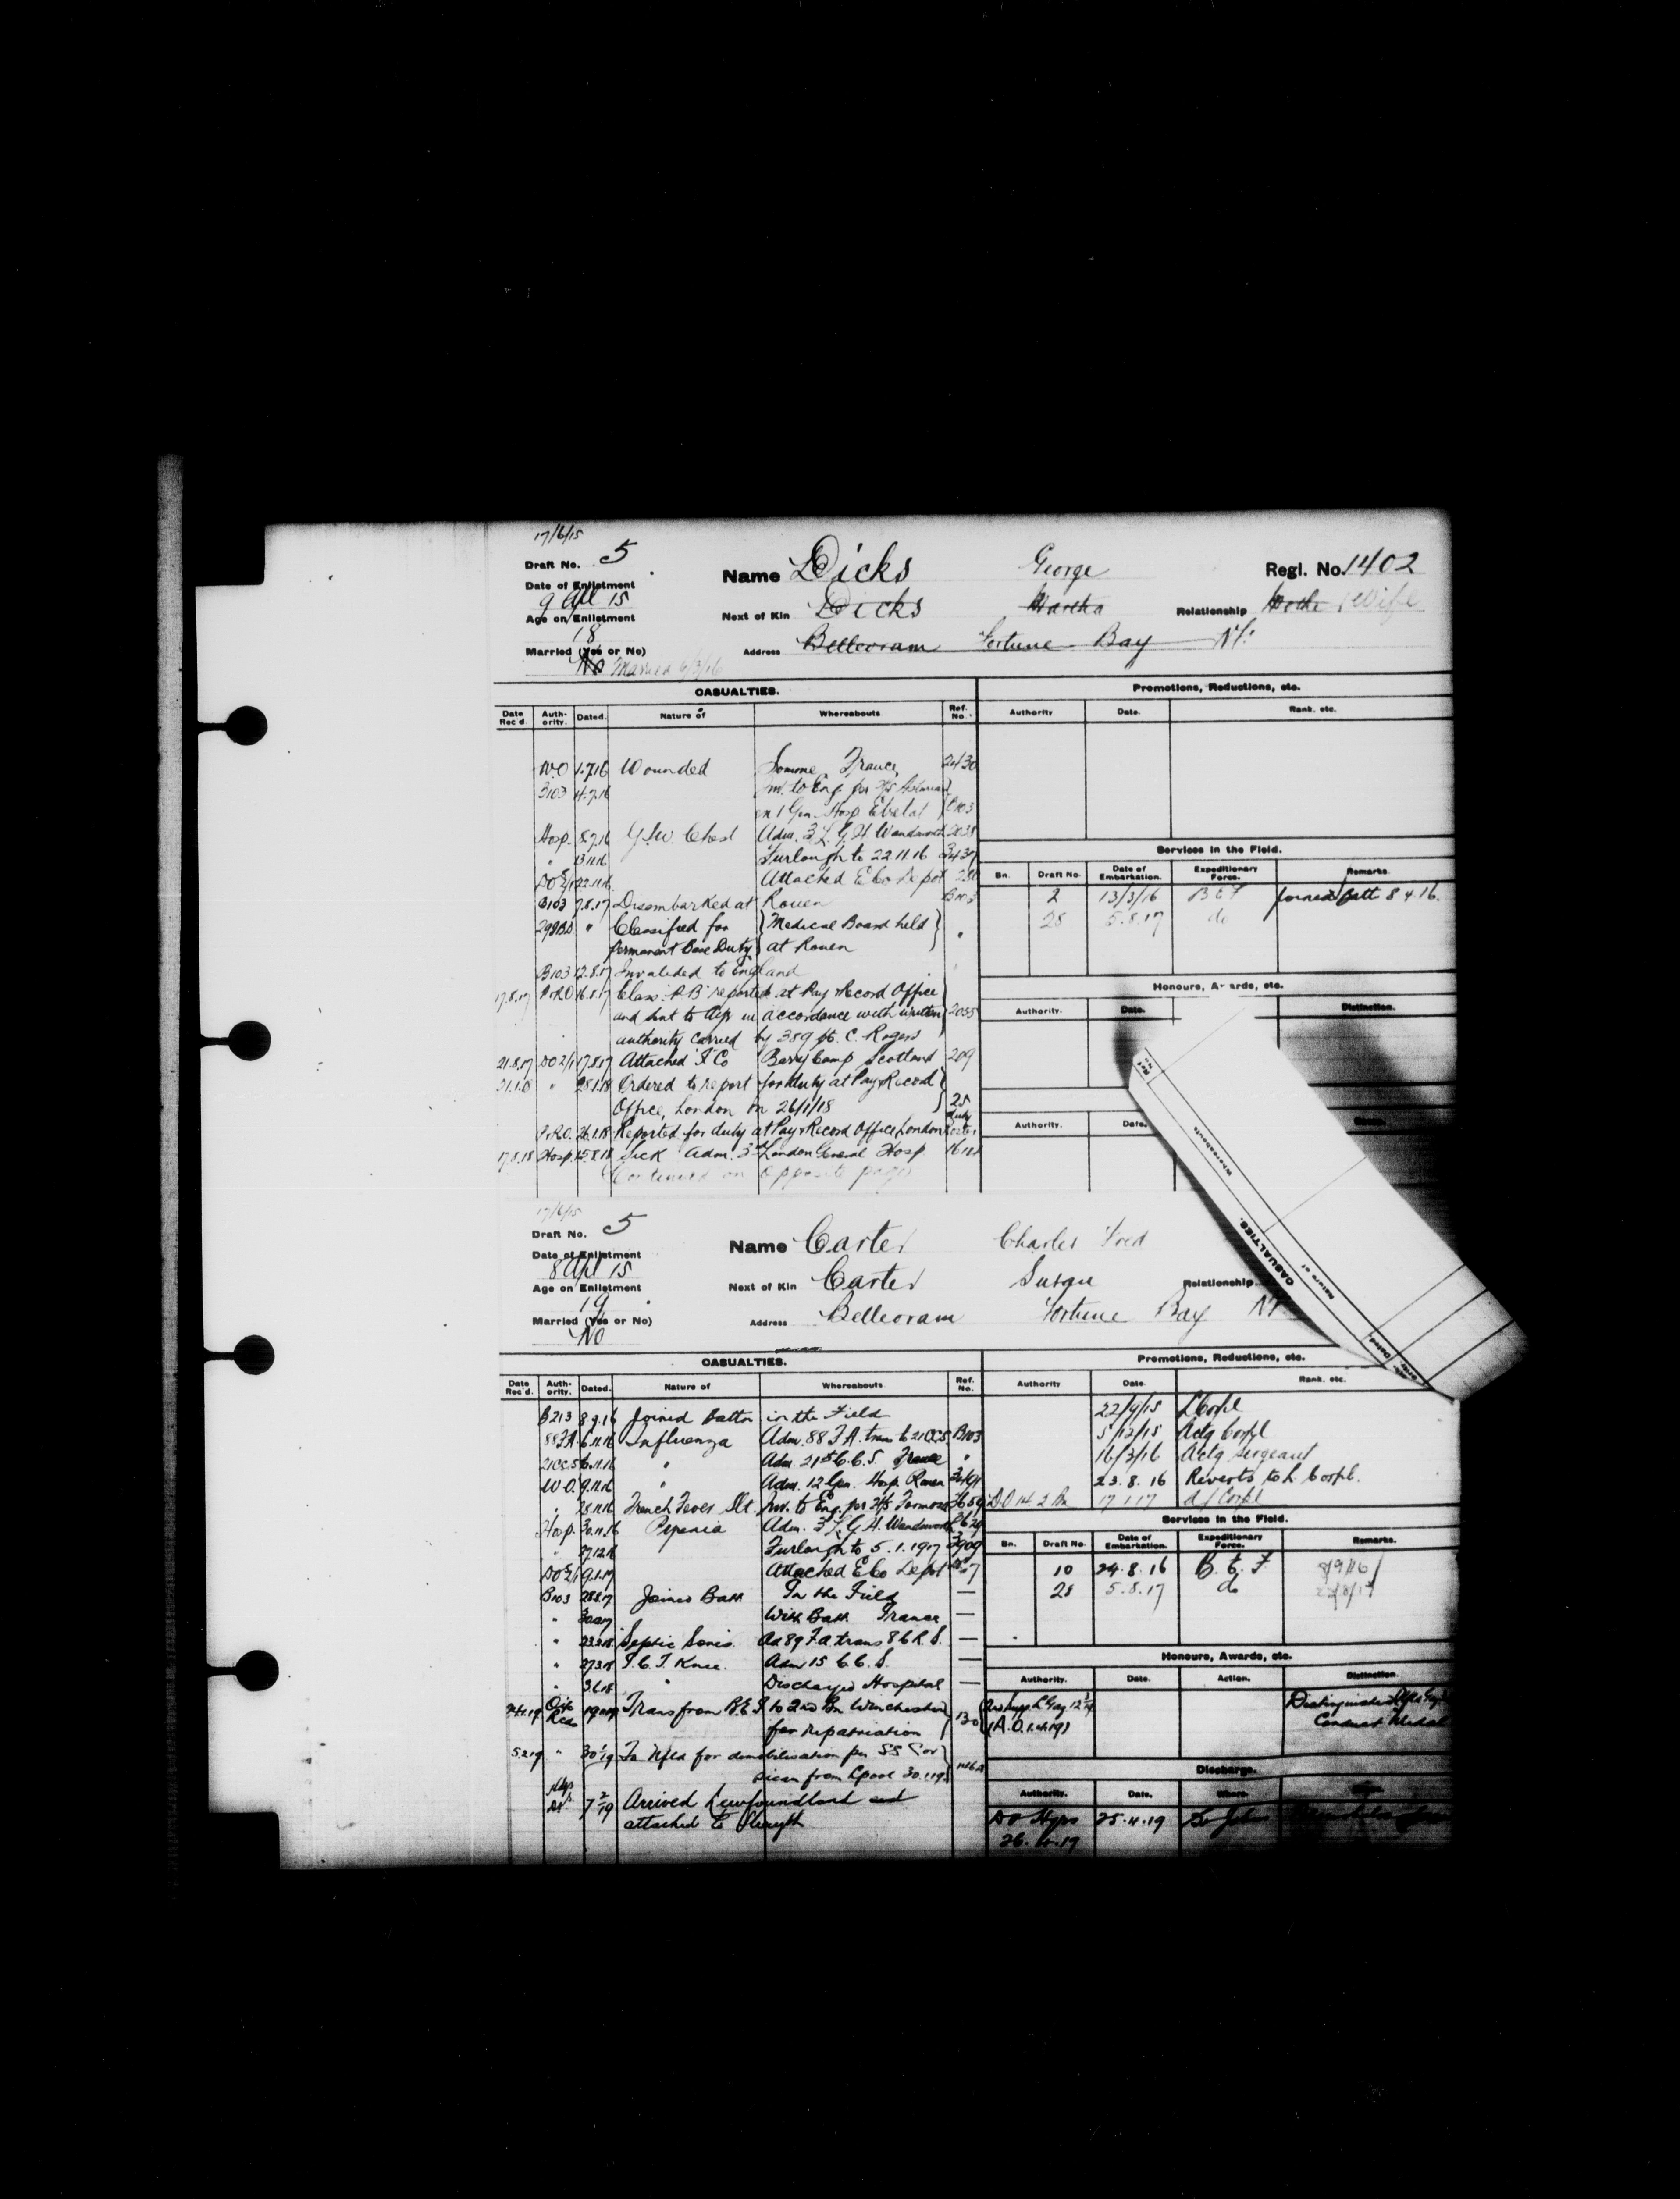 17/6/15
Draft No. 5
Name Dicks George Regl. No. 1402
Date of Enlistment
9 Apl 15
Next of Kin Dicks Martha Relationship Mother Wife
Age on Enlistment
18
Address Belleoram Fortune Bay Nf.
Married (Yes or No)
No Married 6/3/16
CASUALTIES. Promotions, Reductions, etc.
Date Rec'd. Authority. Dated. Nature of Whereabouts Ref. No. Authority Date. Rank. etc.
W.O 1.7.16 Wounded Somme France 2430
B103 4.7.16 Inv. to Eng. per H/S Asturias
on 1 Gen. Hosp Etretat B103
Hosp. 8.7.16 G.S.W. Chest Adm. 3 L.G.H. Wandsworth
" 13.11.16 Furlough to 22.11.16
22.11.16 Attached E Co Depot
B103 7.8.17 Disembarked at Rouen B103
" Classified for Medical Board held
permanent Base Duty at Rouen "
B103 12.8.17 Invalided to England
17.8.17 P.&R.O 16.8.17 Class "P.B" reported at Pay & Record Office
and sent to Ayr in accordance with written
authority carried by 389 Pte. C. Rogers
21.8.17 DO 2/1 17.8.17 Attached F. Co Barry Camp Scotland 209
" 25.1.18 Ordered to report for duty at Pay & Record
Office, London on 26/1/18 25
P.&R.O. 26.1.18 Reported for duty at Pay & Record Office, London
17.8.18 Hosp. 15.8.18 Sick Adm. 3rd London General Hosp
Continued on opposite page
Services in the Field.
Bn. Draft No. Date of Embarkation. Expeditionary Force. Remarks.
2 13/3/16 B E F Joined Batt 8 4.16.
28 5.8.17 do
Honours, Awards, etc.
Authority. Date. Distinction.
Authority. Date.
Whereabouts
CASUALTIES.
Nature of
Dated
17/6/15
Draft No. 5
Name Carter Charles Fred
Date of Enlistment
8 Apl 15
Next of Kin Carter Susan Relationship
Age on Enlistment
19
Address Belleoram Fortune Bay Nf
Married (Yes or No)
No
CASUALTIES. Promotions, Reductions, etc.
Date Rec'd. Authority. Dated. Nature of Whereabouts Ref. No. Authority Date. Rank. etc.
B213 8.9.16 Joined Battn in the Field
88 F.A. 6.11.16 Influenza Adm. 88 F.A. trans to 21 CCS B103
21 CCS 6.11.16 " Adm. 21st C.C.S. France "
W.O. 9.11.16 " Adm. 12 Gen. Hosp. Rouen
" 28.11.16 Trench Fever Slt. Inv. to Eng. per H/S Formosa
Hosp. 30.11.16 Pyrexia Adm. 3 L.G.H. Wandsworth
" 27.12.16 Furlough to 5.1.1917
9.1.17 Attached E Co Depot
B103 28.8.17 Joined Batt In the Field —
" With Batt. France —
" Septic Sores. Ad 89 F.a. trans 8 C.R.S. —
" 27.3.18 I.C.T. Knee. Adm 15 C.C.S. —
" 3.6.18 " Discharged Hospital —
Trans from B.E.F. to 2nd Bn Winchester
for repatriation
5.2.19 " 30/1/19 To Nfld for demobilisation per SS Corsican from Lpool 30.1.19
7 2/19 Arrived Newfoundland and
attached to Strength
22/9/15 L Corpl
5/12/15 Actg Corpl
16/3/16 Actg Sergeant
23.8.16 Reverts to L. Corpl.
17.1.17 a/Corpl
Services in the Field.
Bn. Draft No. Date of Embarkation. Expeditionary Force. Remarks.
10 24.8.16 B.E.F 8/9/16
28 5.8.17 do
Honours, Awards, etc.
Authority. Date. Action. Distinction.
(A.O. 1.4.19) Distinguished
Conduct Medal
Discharge.
Authority. Date. Where.
DO Hqrs 25.4.19 St Johns
26.4.19